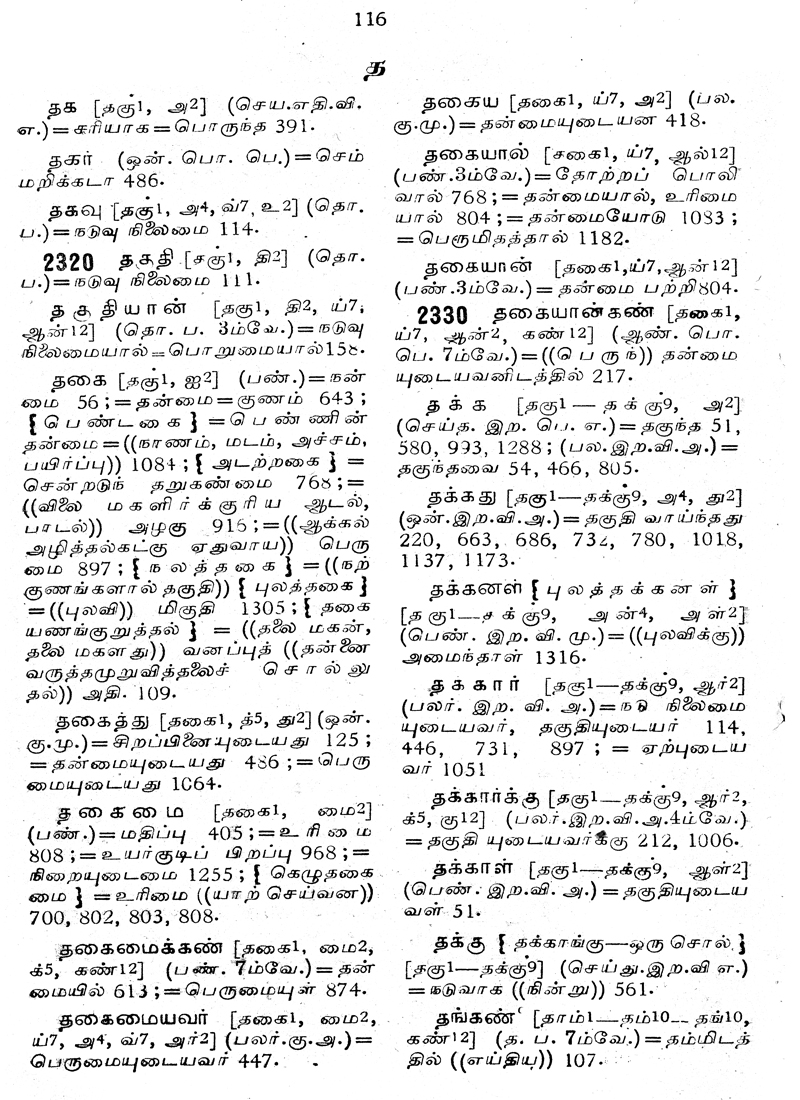 116
த
தக [தகு்1, அ2] (செய.எதி.வி.
எ.)=சரியாக=பொருந்த 391.
தகர் (ஒன். பொ. பெ.)=செம்
மறிக்கடா 486.
தகவு [தகு்1, அ4, வ்7, உ2] (தொ.
ப.)=நடுவு நிலைமை 114.
2320 தகுதி [சகு்1, தி2] (தொ.
ப.)=நடுவு நிலைமை 111.
தகுதியான் [தகு1, தி2, ய்7,
ஆன்12] (தொ. ப. 3ம்வே.)=நடுவு
நிலைமையால்=பொறுமையால்158.
தகை [தகு்1, ஐ2] (பண்.)=நன்
மை 56;=தன்மை=குணம் 643;
{பெண்டகை}=பெண்ணின்
தன்மை=((நாணம், மடம், அச்சம்,
பயிர்ப்பு)) 1084;{அடற்றகை}=
சென்றடுந் தறுகண்மை 768;=
((விலை மகளிர்க்குரிய ஆடல்,
பாடல்)) அழகு 916;=((ஆக்கல்
அழித்தல்கட்கு ஏதுவாய)) பெரு
மை 897;{நலத்தகை}=((நற்
குணங்களால் தகுதி)) {புலத்தகை}
=((புலவி)) மிகுதி 1305;{தகை
யணங்குறுத்தல்} = ((தலை மகன்,
தலை மகளது)) வனப்புத் ((தன்னை
வருத்தமுறுவித்தலைச் சொல்லு
தல்)) அதி. 109.
தகைத்து [தகை1, த்5, து2] (ஒன்.
கு.மு.)=சிறப்பினையுடையது 125;
=தன்மையுடையது 486;=பெரு
மையுடையது 1064.
தகைமை [தகை1, மை2]
(பண்.)=மதிப்பு 405;=உரிமை
808;=உயர்குடிப் பிறப்பு 968;=
நிறையுடைமை 1255;{கெழுதகை
மை}=உரிமை ((யாற் செய்வன))
700, 802, 803, 808.
தகைமைக்கண் [தகை1, மை2,
க்5, கண்12] (பண். 7ம்வே.)=தன்
மையில் 613;=பெருமையுள் 874.
தகைமையவர் [தகை1, மை2,
ய்7, அ4, வ்7, அர்2] (பலர்.கு.அ.)=
பெருமையுடையவர் 447.
தகைய [தகை1, ய்7, அ2] (பல.
கு.மு.)=தன்மையுடையன 418.
தகையால் [சகை1, ய்7, ஆல்12]
(பண்.3ம்வே.)=தோற்றப் பொலி
வால் 768;=தன்மையால், உரிமை
யால் 804;=தன்மையோடு 1083;
=பெருமிதத்தால் 1182.
தகையான் [தகை1,ய்7,ஆன்12]
(பண்.3ம்வே.)=தன்மை பற்றி804.
2330 தகையான்கண் [தகை1,
ய்7, ஆன்2, கண்12] (ஆண். பொ.
பெ. 7ம்வே.)=((பெருந்)) தன்மை
யுடையவனிடத்தில் 217.
தக்க [தகு1—தக்கு்9, அ2]
(செய்த. இற. பெ. எ.)=தகுந்த 51,
580, 993, 1288; (பல.இற.வி.அ.)=
தகுந்தவை 54, 466, 805.
தக்கது [தகு1—தக்கு்9, அ4, து2]
(ஒன்.இற.வி.அ.)=தகுதி வாய்ந்தது
220, 663, 686, 732, 780, 1018,
1137, 1173.
தக்கனள் {புலத்தக்கனள்}
[தகு1—சக்கு்9, அன்4, அள்2]
(பெண். இற. வி. மு.)=((புலவிக்கு))
அமைந்தாள் 1316.
தக்கார் [தகு1—தக்கு்9, ஆர்2]
(பலர். இற. வி. அ.)=நடு நிலைமை
யுடையவர், தகுதியுடையர் 114,
446, 731, 897; = ஏற்புடைய
வர் 1051
தக்கார்க்கு [தகு1—தக்கு்9, ஆர்2,
க்5, கு12] (பலர்.இற.வி.அ.4ம்வே.)
=தகுதி யுடையவர்க்கு 212, 1006.
தக்காள் [தகு1—தக்கு்9, ஆள்2]
(பெண். இற.வி. அ.)=தகுதியுடைய
வள் 51.
தக்கு {தக்காங்கு—ஒரு சொல்.}
[தகு1—தக்கு்9] (செய்து.இற.வி எ.)
=நடுவாக ((நின்று)) 561.
தங்கண் [தாம்1—தம்10—தங்10,
கண்12] (த. ப. 7ம்வே.)=தம்மிடத்
தில் ((எய்திய)) 107.